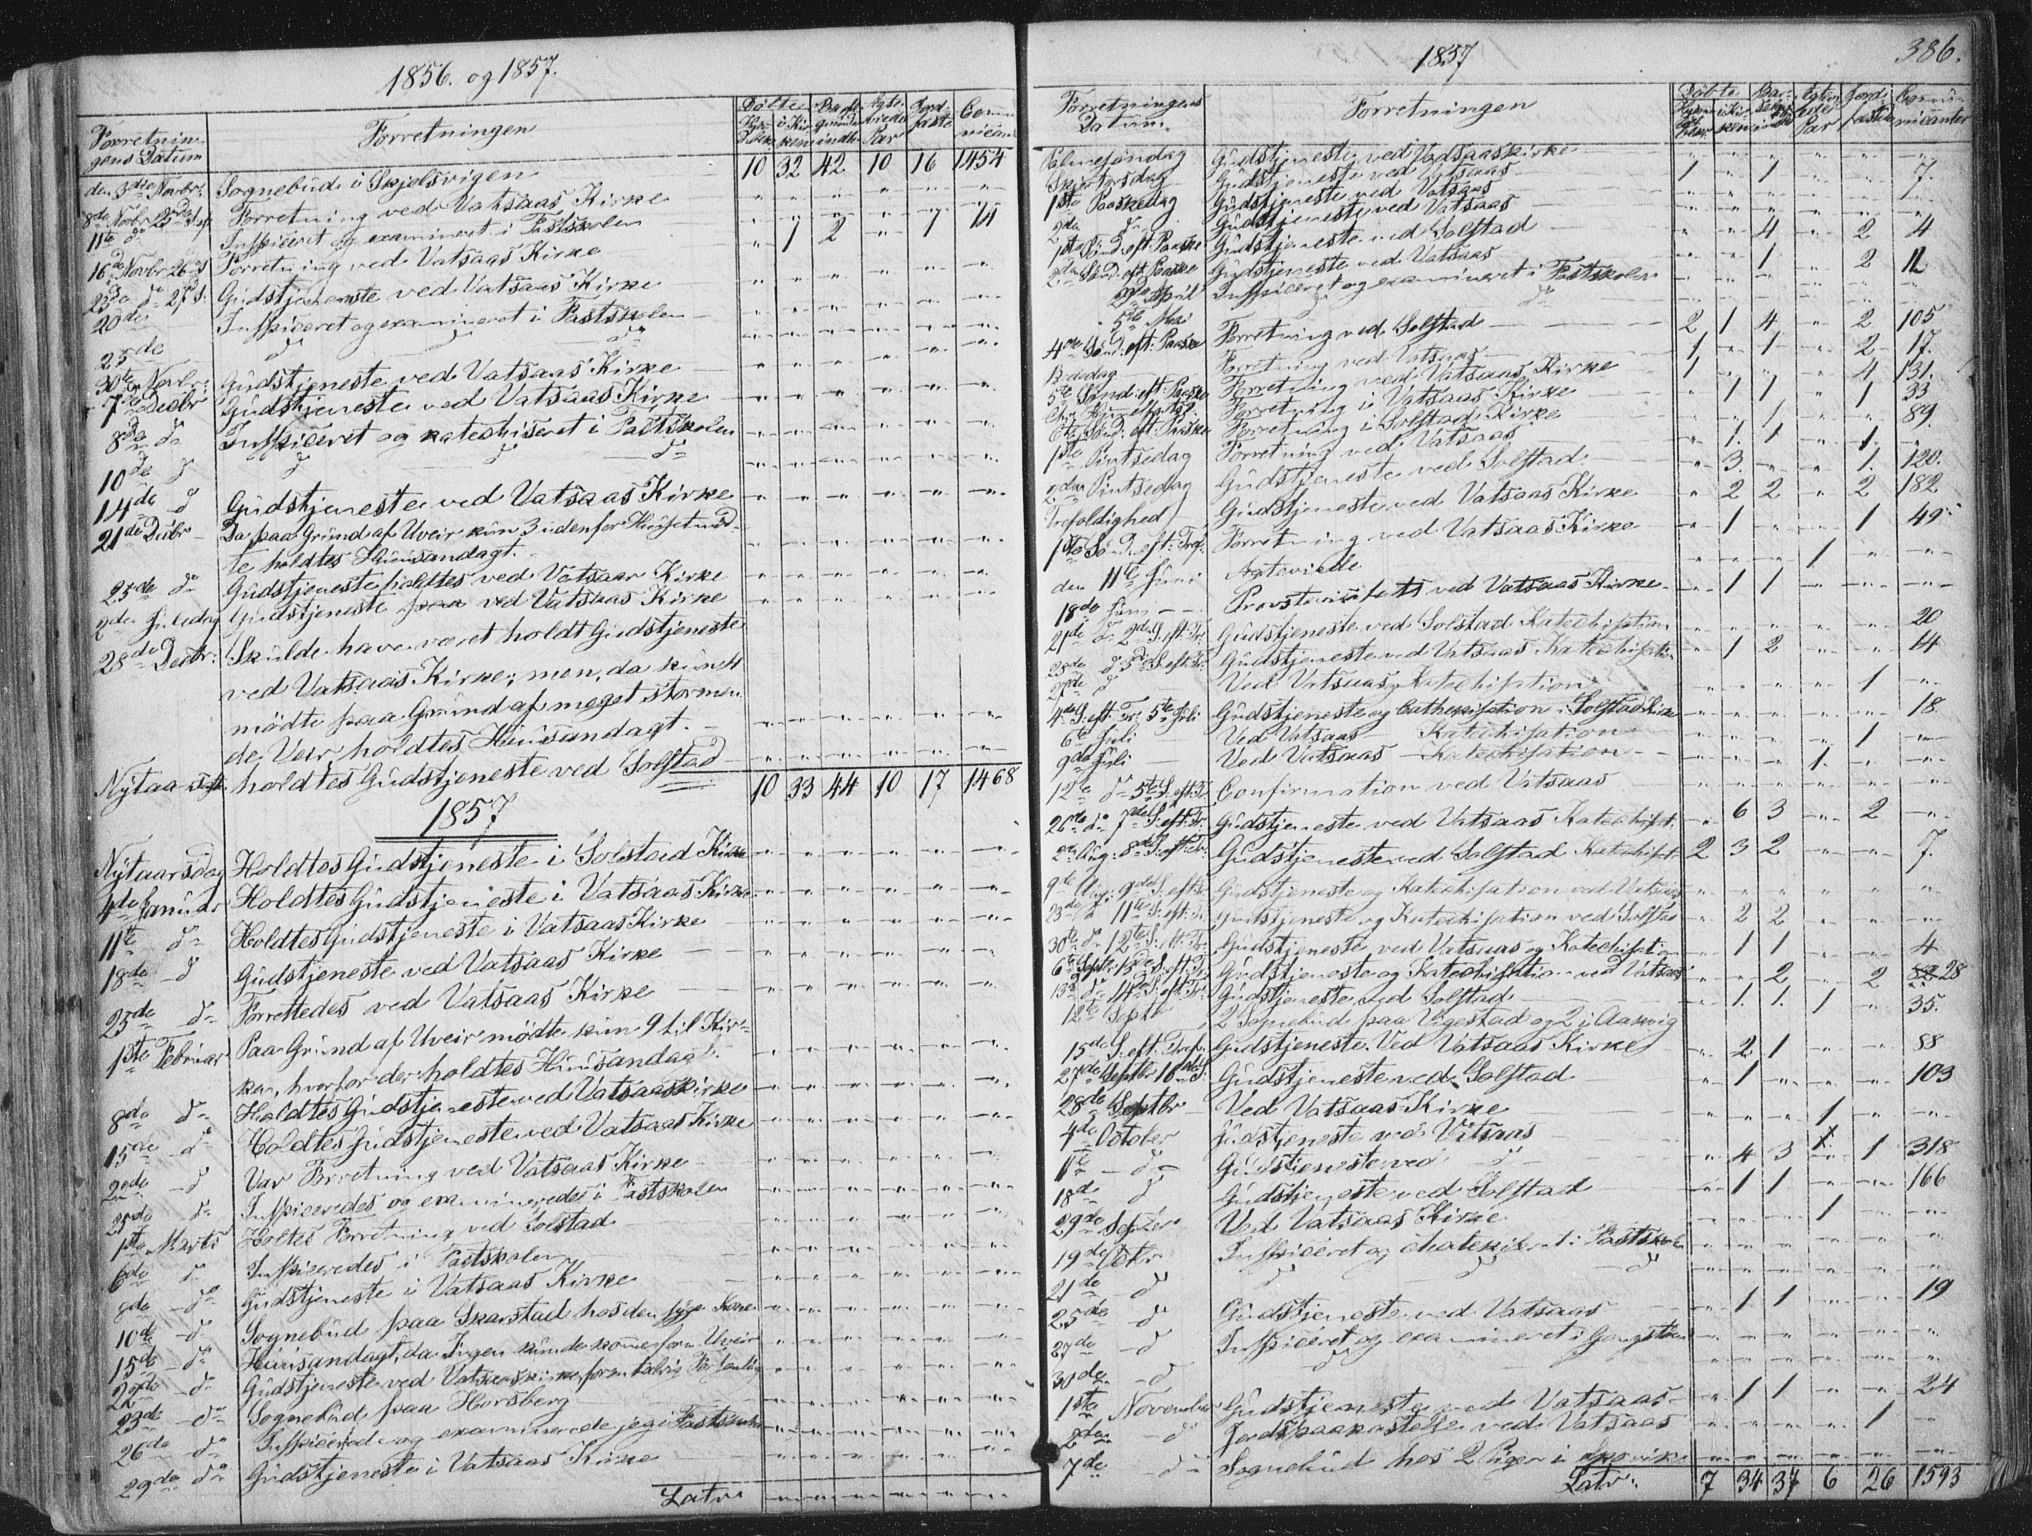 1856. og 1857.
Forretnin- Forretningen Døbte Com-
gens Datum
10 32 42 10 16 1454
den 3die Novbr: Sognebud i Skjelsvigen
8de Novbr Forretning ved Vatsaas Kirke
11te do Inspiceret og examineret i Fastskolen 1 2 14
16de Novbr Forretning ved Vatsaas Kirke
23de do Gudstjeneste ved Vatsaas Kirke
20de Inspiceret og examineret i Fastskolen
25de do do do
30te Novbr: Gudstjeneste ved Vatsaas Kirke
7de Decbr Gudstjeneste ved Vatsaas Kirke
8de do Inspiceret og katechiseret i Fastskolen
10de do do do do
14de do Gudstjeneste ved Vatsaas Kirke
21de Decbr Da paa Grund af Uveir kun 3 udenfor Huset mød-
te holdtes Huusandagt.
25de do Gudstjeneste holdtes ved Vatsaas Kirke
2den Juledag Gudstjeneste ved Vatsaas Kirke
28de Decbr: Skulde have været holdt Gudstjeneste
ved Vatsaas Kirke; men, da
mødte paa Grund af meget stormen-
de Veir, holdtes Huusandagt.
holdtes Gudstjeneste ved Solstad
10 33 44 10 17 1468
1857
Nytaarsdag Holdtes Gudstjeneste i Solstad Kirke
4de Januar Holdtes Gudstjeneste i Vatsaas Kirke
11te do Holdtes Gudstjeneste i Vatsaas Kirke
18de do Gudstjeneste ved Vatsaas Kirke
25de do Forrettedes ved Vatsaas Kirke
1ste Februar Paa Grund af Uveir mødte kun 9 til Kir-
ken, hvorfor der holdtes Huusandagt.
8de do Holdtes Gudstjeneste ved Vatsaas Kirke
15de do Holdtes Gudstjeneste ved Vatsaas Kirke
22de do Var Forretning ved Vatsaas Kirke
25de do Inspiceredes og examineredes i Fastskolen
1ste Marts Holtes Forretning ved Solstad
6de do Inspiceredes i Fastskolen
8de do Gudstjeneste i Vatsaas Kirke
10de do Sognebud paa Skarstad hos den syge Kone
15de do Huusandagt, da Ingen kunde komme form. Uveir
22de do Gudstjeneste ved Vatsaaskirke
23de do Sognebud paa Horsberg
26de do Inspicerede og examinerede jeg i Fastskolen
29de do Gudstjeneste i Vatsaas Kirke
Latr.
1857 386.
Forretningens Forretningen Døbte
Datum.
Palmesøndag Gudstjeneste ved Vatsaaskirke
Skjertorsdag Gudstjeneste ved Vatsaas 1 1 7.
1ste Paaskedag Gudstjeneste ved Vatsaas
2den do Gudstjeneste ved Vatsaas
1ste Sønd. eft. Paaske Gudstjeneste ved Solstad 4 2 4
2den Sønd. eft. Paaske Gudstjeneste ved Vatsaas 1 2 12
April Inspiceret og examineret i Fastskolen
5te Mai do do
4de Sønd. eft. Paaske Forretning ved Solstad 2 1 4 2 105
Bededag Forretning ved Vatsaas 1 1 2 17.
5te Sønd. eft. Paaske Forretning ved Vatsaas Kirke 1 4 131.
Forretning i Vatsaas Kirke 1 1 1 33
6te Sønd. eft. Paaske Forretning i Solstad Kirke 89
1ste Pintsedag Forretning ved Vatsaas 1. 1 1.
2den Pintsedag Gudstjeneste ved Solstad. 3. 1. 120.
Trefoldighed Gudstjeneste ved Vatsaas Kirke 2 2 2 182
1ste Sønd. eft: Tref. Forretning ved Vatsaas Kirke 1 1 49
den 11te Juni Ægteviede 1
18de Juni Provstevisitats ved Vatsaas Kirke 1 1
21de do 2den S. eft. Tr. Gudstjeneste ved Solstad Katechisation 20
25de do Gudstjeneste ved Vatsaas Katechisation 1 2 14
27de do Ved Vatsaas Katechisation 1
4de S. eft. Tr. 5te Juli Gudstjeneste og Cathekisation i Solstad Kirke 18
6te Juli Ved Vatsaas Katechisation 1
9de Juli Ved Vatsaas Katechisation 1.
12te do 5te S. eft. Tr. Confirmation ved Vatsaas
26de do 7de S. eft. Tr. Gudstjeneste ved Vatsaas Katechisat. 6 3 2
2den Aug. 8de S. eft. Tr. Gudstjeneste ved Solstad Katechisat. 2 3 2 7.
9de Aug: 9de S. eft. Tr. Gudstjeneste og Katechisation ved Vatsaas
23de do 11te S. eft. Tr. Gudstjeneste og Katechisation ved Solstad 2 2
30te do 12te S. eft. Tr. Gudstjeneste ved Vatsaas og Katechisation 1 1 4
6te Septbr 13de S. eft. Tr. Gudstjeneste og Katechisation ved Vatsaas 2 2 28
13de do 14de S. eft. Tr. Gudstjeneste ved Solstad 1. 1. 1 35.
12te Septbr 2 Sognebud paa Vigestad og 2 i Aarvig
15de S. eft. Tref. Gudstjeneste. Ved Vatsaas Kirke 2 1 88
27de Septbr 16de S. Gudstjeneste ved Solstad 1 103
28de Septbr Ved Vatsaas Kirke 1
4de October Gudstjeneste ved Vatsaas 4 3 1 318
11te do Gudstjeneste ved do
18de do Gudstjeneste ved Solstad 1 1 166
29de Septbr Ved Vatsaas Kirke 1
19de Octbr Inspiceret og chatekiseret i Fastskolen
21de do do do do
25de do Gudstjeneste ved Vatsaas 1 1 19
27de do Inspiceret og examineret i
30de do do
1ste November Gudstjeneste ved Vatsaas 1 1 24
2den do Jordspaakastelse ved Vatsaas 1
7de do Sognebud hos 2 Piger i
Latr: 7 34 37 6 26 1593